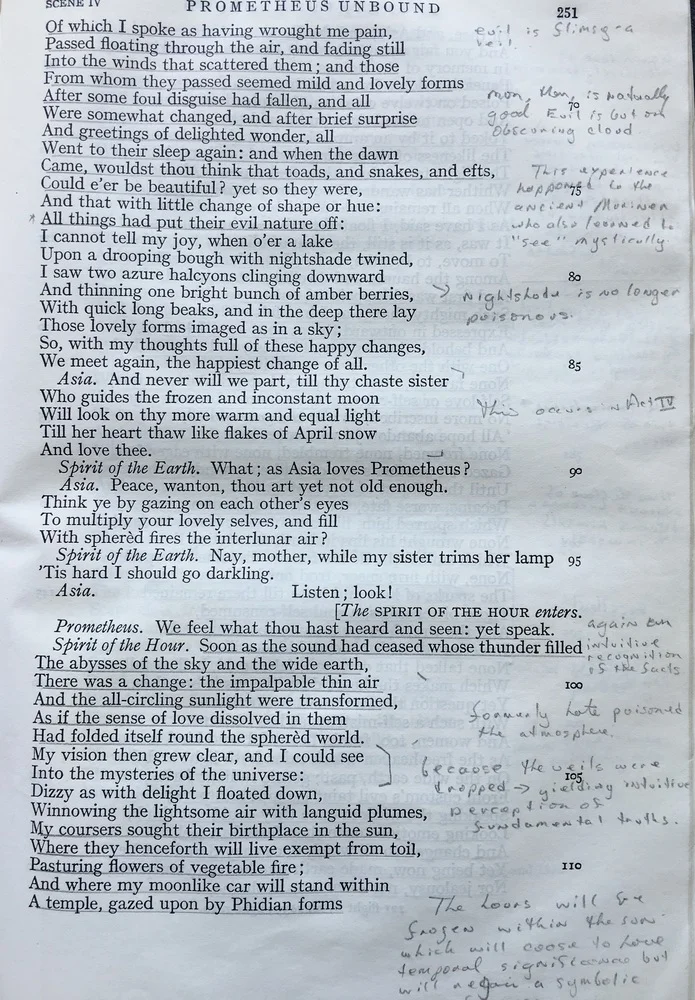 SCENE IV PROMETHEUS UNBOUND 251
Of which I spoke as having wrought me pain,
evil is flimsy - a
Passed floating through the air, and fading still
veil.
Into the winds that scattered them; and those
From whom they passed seemed mild and lovely forms
After some foul disguise had fallen, and all 70
man, then, is naturally
Were somewhat changed, and after brief surprise
good Evil is but an
And greetings of delighted wonder, all
obscuring cloud
Went to their sleep again: and when the dawn
Came, wouldst thou think that toads, and snakes, and efts,
This experience
Could e'er be beautiful? yet so they were, 75
happened to the
And that with little change of shape or hue:
ancient Mariner
* All things had put their evil nature off:
who also learned to
I cannot tell my joy, when o'er a lake
"see" mystically
Upon a drooping bough with nightshade twined,
I saw two azure halcyons clinging downward 80
And thinning one bright bunch of amber berries,
Nightshade is no longer
With quick long beaks, and in the deep there lay
poisonous.
Those lovely forms imaged as in a sky;
So, with my thoughts full of these happy changes,
We meet again, the happiest change of all. 85
Asia. And never will we part, till thy chaste sister
Who guides the frozen and inconstant moon
this occurs in Act IV
Will look on thy more warm and equal light
Till her heart thaw like flakes of April snow
And love thee.
Spirit of the Earth. What; as Asia loves Prometheus? 90
Asia. Peace, wanton, thou art yet not old enough.
Think ye by gazing on each other's eyes
To multiply your lovely selves, and fill
With spherèd fires the interlunar air?
Spirit of the Earth. Nay, mother, while my sister trims her lamp 95
'Tis hard I should go darkling.
Asia. Listen; look!
[The SPIRIT OF THE HOUR enters.
Prometheus. We feel what thou hast heard and seen: yet speak.
again an
Spirit of the Hour. Soon as the sound had ceased whose thunder filled
intuitive
recognition
The abysses of the sky and the wide earth,
of the facts
There was a change: the impalpable thin air 100
And the all-circling sunlight were transformed,
formerly hate poisoned
As if the sense of love dissolved in them
the atmosphere.
Had folded itself round the spherèd world.
My vision then grew clear, and I could see
because the veils were
Into the mysteries of the universe: 105
dropped → yielding intuitive
Dizzy as with delight I floated down,
perception of
Winnowing the lightsome air with languid plumes,
fundamental truths.
My coursers sought their birthplace in the sun,
Where they henceforth will live exempt from toil,
Pasturing flowers of vegetable fire; 110
And where my moonlike car will stand within
A temple, gazed upon by Phidian forms
The hours will be
frozen within the sun
which will cease to have
temporal significance but
will a symbolic